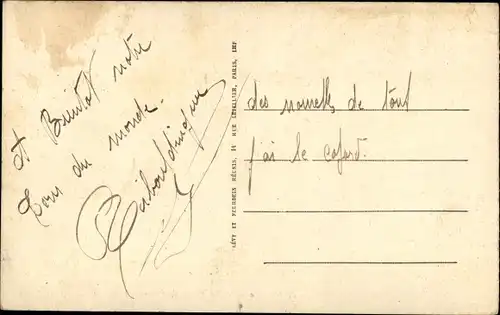 A Bientot notre
Tour du monde.
Ribouldingue
LÉVY ET NEURDEIN RÉUNIS, 44 RUE LETELLIER, PARIS, IMP
des nouvelles de tout
j'ai le cafard.